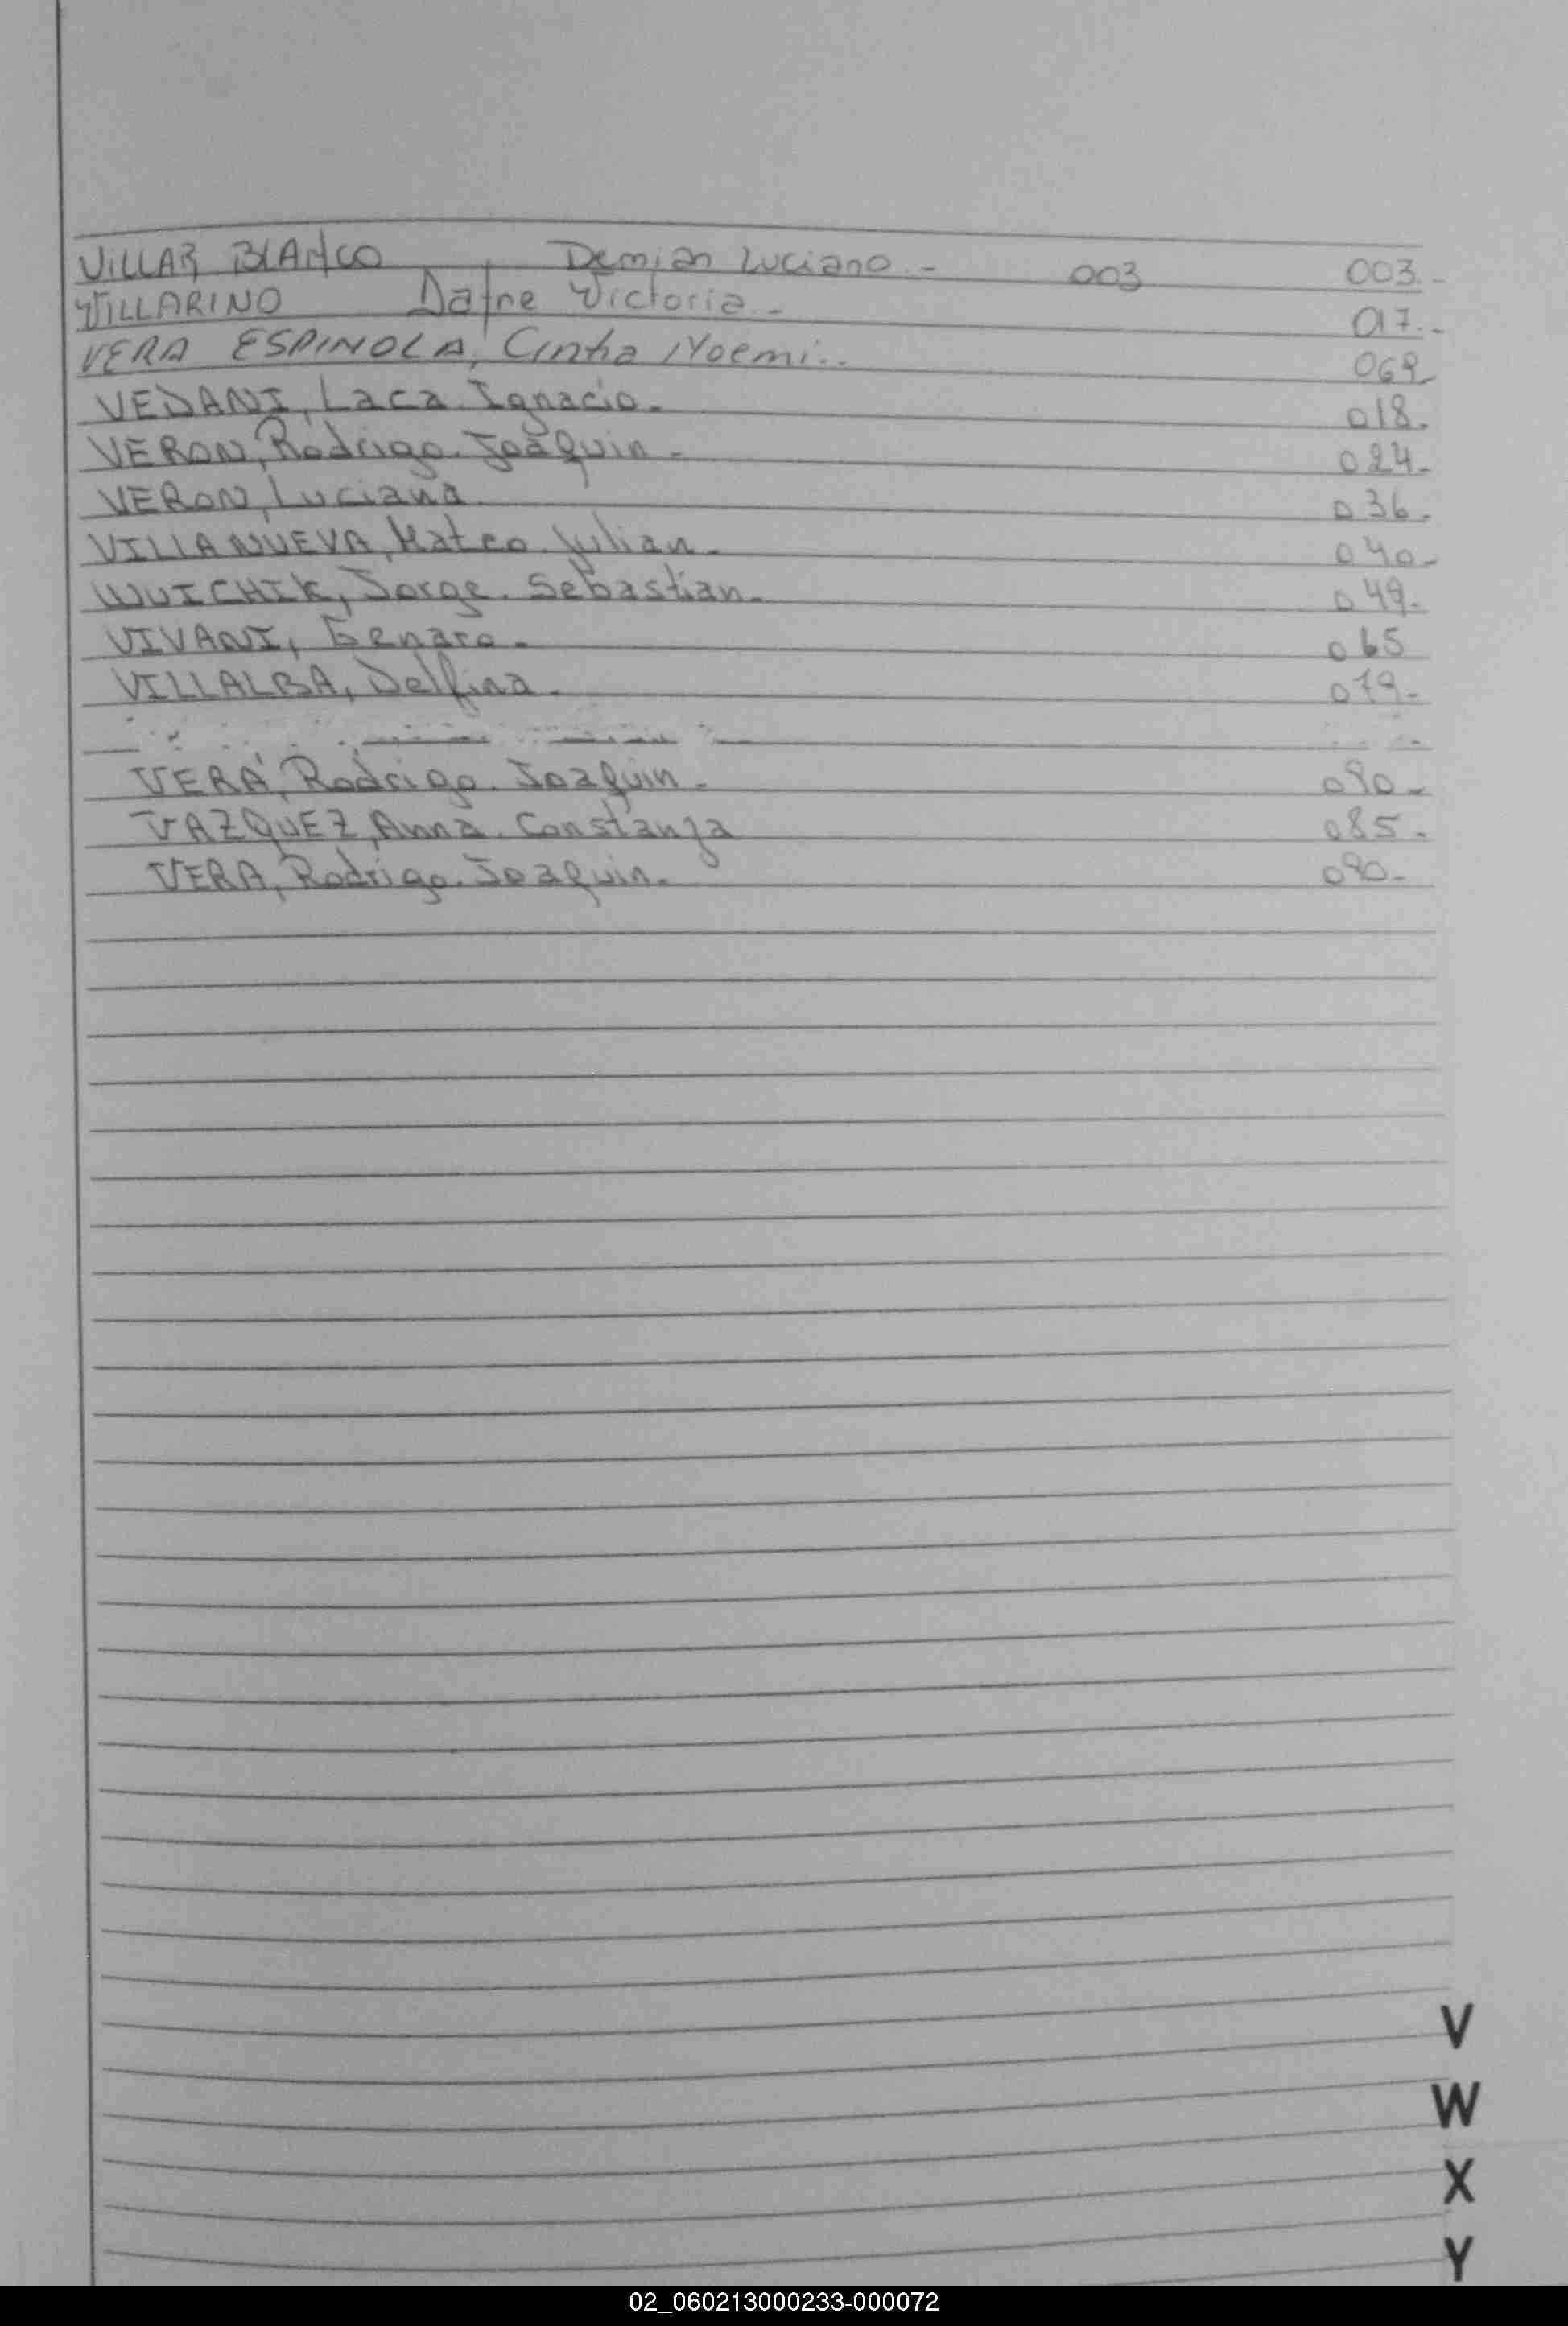 VILLAR BLANCO, Demian Luciano - 003 003.-
VILLARINO Dafne Victoria - 017.-
VERA ESPINOLA, Cinthia Noemi.. 069
VEDANI, Laca. Ignacio. 018.
VERON, Rodrigo. Joaquin - 024-
VERON, Luciana 036.
VILLANUEVA, Mateo. Julian. 040-
WUICHIK, Jorge. Sebastian. 049-
VIVANI, Genaro. 065
VILLALBA, Delfina. 079-
VERA, Rodrigo. Joaquin - 090-
VAZQUEZ, Anna. Constanza 085.
VERA, Rodrigo. Joaquin. 090-
V
W
X
Y
02_060213000233-000072